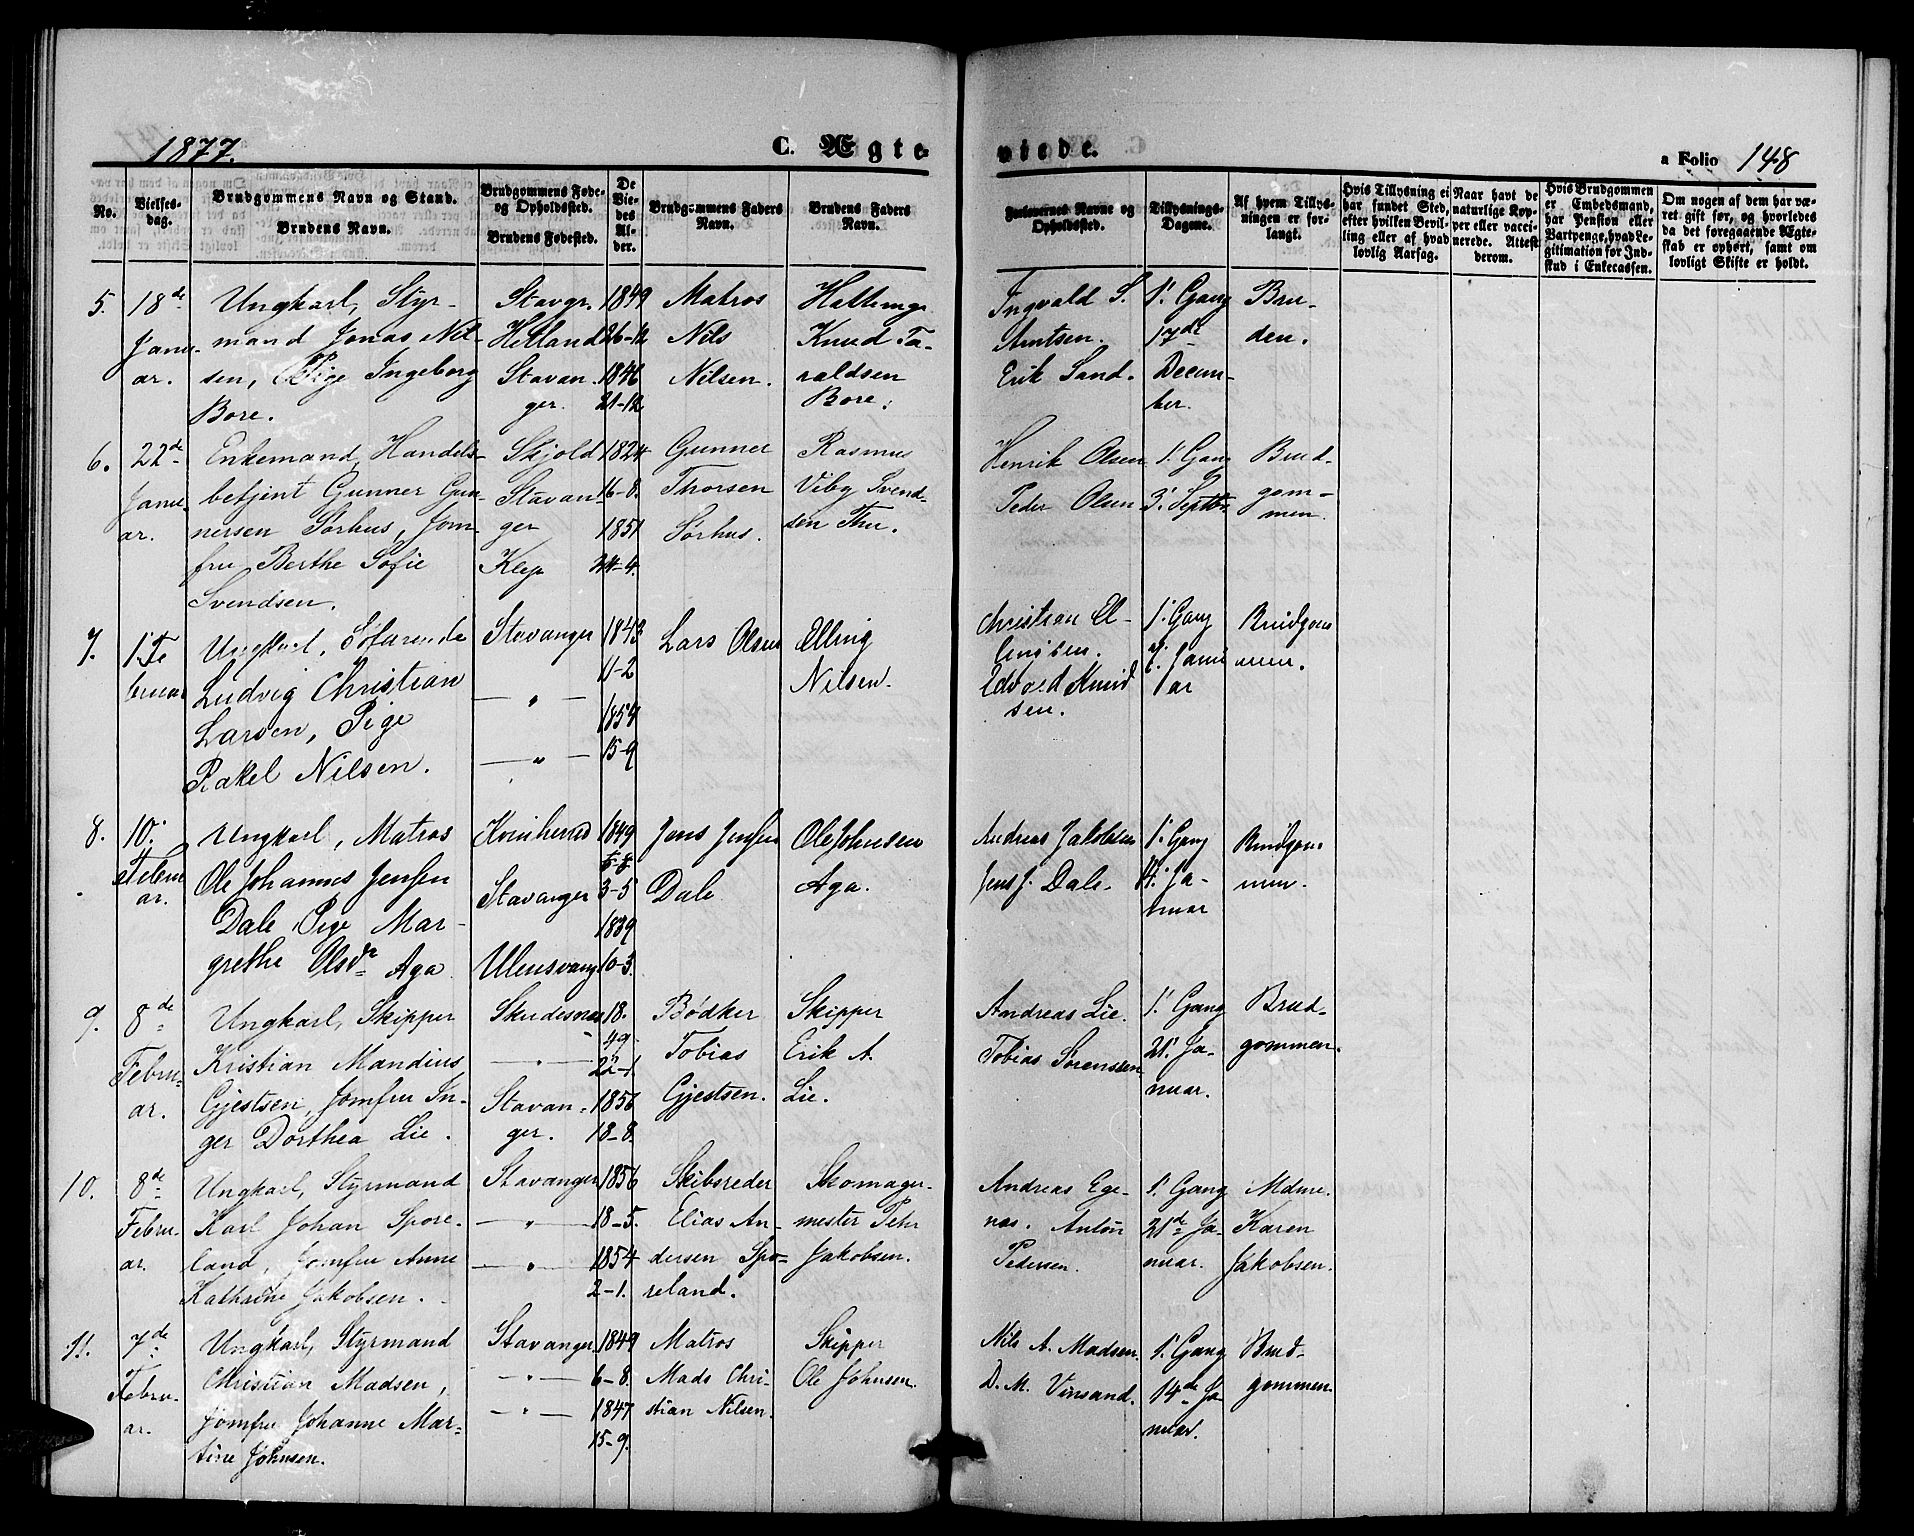 1877.
C. Ægte
viede.
a Folio 148
No.
Vielses-
dag.
Brudgommens Navn og Stand.
Brudens Navn.
Brudgommens Føde-
og Opholdssted.
Brudens Fødested.
De
Vie-
des
Al-
der.
Brudgommens Faders
Navn.
Brudens Faders
Navn.
Forlovernes Navne og
Opholdssted.
Tillysnings-
Dagene.
Af hvem Tillys-
ningen er for-
langt.
Hvis Tillysning ei
har fundet Sted,
efter hvilken Bevil-
ling eller af hvad
lovlig Aarsag.
Naar havt de
naturlige Kop-
per eller vacci-
nerede. Attest
derom.
Hvis Brudgommen
er Embedsmand,
har Pension eller
Vartpenge, hvad Le-
gitimation for Ind-
skud i Enkecassen.
Om nogen af dem har væ-
ret gift før, og hvorledes
da det foregaaende Ægte-
skab er ophørt, samt om
lovligt Skifte er holdt.
5.
18de
Janu-
ar.
Ungkarl, Styr-
mand Jonas Nil-
sen, Pige Ingeborg
Bore.
Stavgr.
Hetland
Stavan-
ger.
1849
26-12
1846
21-12
Matros
Nils
Nilsen.
Knud Ta-
raldsen
Bore.
Ingvald S.
Arntsen.
Erik Sand.
1' Gang
17de
Decem-
ber.
Bru-
den.
6.
22de
Janu-
ar.
Enkemand, Handels-
betjent Gunner Gun-
nersen Sørhus, Jom-
fru Berthe Sofie
Svendsen.
Skjold
Stavan-
ger
Klep
1824
16-8.
1851
24-4.
Gunner
Thorsen
Sørhus.
Rasmus
Viby Svend-
sen Thu.
Henrik Olsen
Peder Olsen
1' Gang
3' Septbr.
Brud-
gom-
men.
7.
1' Fe
bruar
Ungkarl, Søfarende
Ludvig Christian
Larsen, Pige
Rakel Nilsen.
Stavanger
— " —
— " —
1843
11-2
1854
15-9
Lars Olsen
Elling
Nilsen.
Christian El-
lingsen.
Edvard Knud
sen.
1' Gang
7' Janu
ar
Brudgom
men.
8.
10'
Febru
ar.
Ungkarl, Matros
Ole Johannes Jensen
Dale, Pige Mar-
grethe Olsdr Aga
Kvinherad
Stavanger
Ulensvang
1849
3-5
1839
10-3.
Jens Jensen
Dale
Ole Johnsen
Aga.
Andreas Jakobsen
Jens J. Dale.
1' Gang
14' Ja-
nuar
Brudgom
men.
9.
8de
Febru-
ar.
Ungkarl, Skipper
Kristian Mandius
Gjestsen, Jomfru In-
ger Dorthea Lie.
Skudesnes
— " —
Stavan-
ger.
18.
49.
22-1
1856
18-8.
Bødker
Tobias
Gjestsen.
Skipper
Erik A.
Lie.
Andreas Lie.
Tobias Sørensen
1' Gang
21' Ja-
nuar.
Brud-
gommen.
10.
8de
Febru-
ar.
Ungkarl, Styrmand
Karl Johan Spore-
land, Jomfru Anne
Kathrine Jakobsen.
Stavanger
— " —
— " —
1856
18-5.
1854
2-1.
Skibsreder
Elias An-
dersen Spo-
reland.
Skomager-
mester Pehr
Jakobsen.
Andreas Ege-
nes. Anton
Pedersen.
1' Gang
21de Ja-
nuar.
Mdme.
Karen
Jakobsen.
11.
7de
Febru-
ar.
Ungkarl, Styrmand
Christian Madsen,
Jomfru Johanne Mar-
tine Johnsen.
Stavanger
— " —
— " —
1849
6-8.
1847
15-9.
Matros
Mads Chri-
stian Nilsen.
Skipper
Ole Johnsen.
Nils A. Madsen.
D. M. Vinsand.
1' Gang
14de Ja-
nuar.
Brud-
gommen.